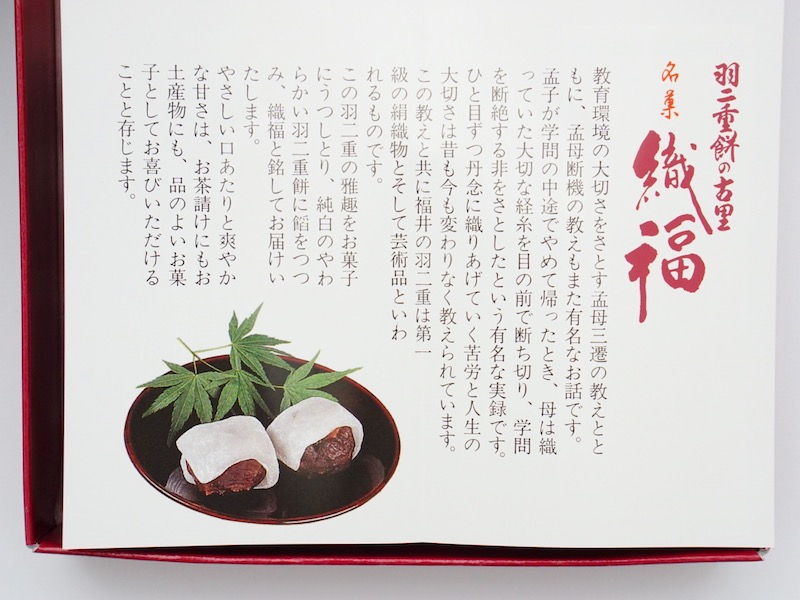 羽二重餅の古里
名菓
織福
教育環境の大切さをさとす孟母三遷の教えとと
もに、孟母断機の教えもまた有名なお話です。
孟子が学問の中途でやめて帰ったとき、母は織
っていた大切な経糸を目の前で断ち切り、学問
を断絶する非をさとしたという有名な実録です。
ひと目ずつ丹念に織りあげていく苦労と人生の
大切さは昔も今も変わりなく教えられています。
この教えと共に福井の羽二重は第一
級の絹織物とそして芸術品といわ
れるものです。
この羽二重の雅趣をお菓子
にうつしとり、純白のやわ
らかい羽二重餅に餡をつつ
み、織福と銘してお届けい
たします。
やさしい口あたりと爽やか
な甘さは、お茶請けにもお
土産物にも、品のよいお菓
子としてお喜びいただける
ことと存じます。